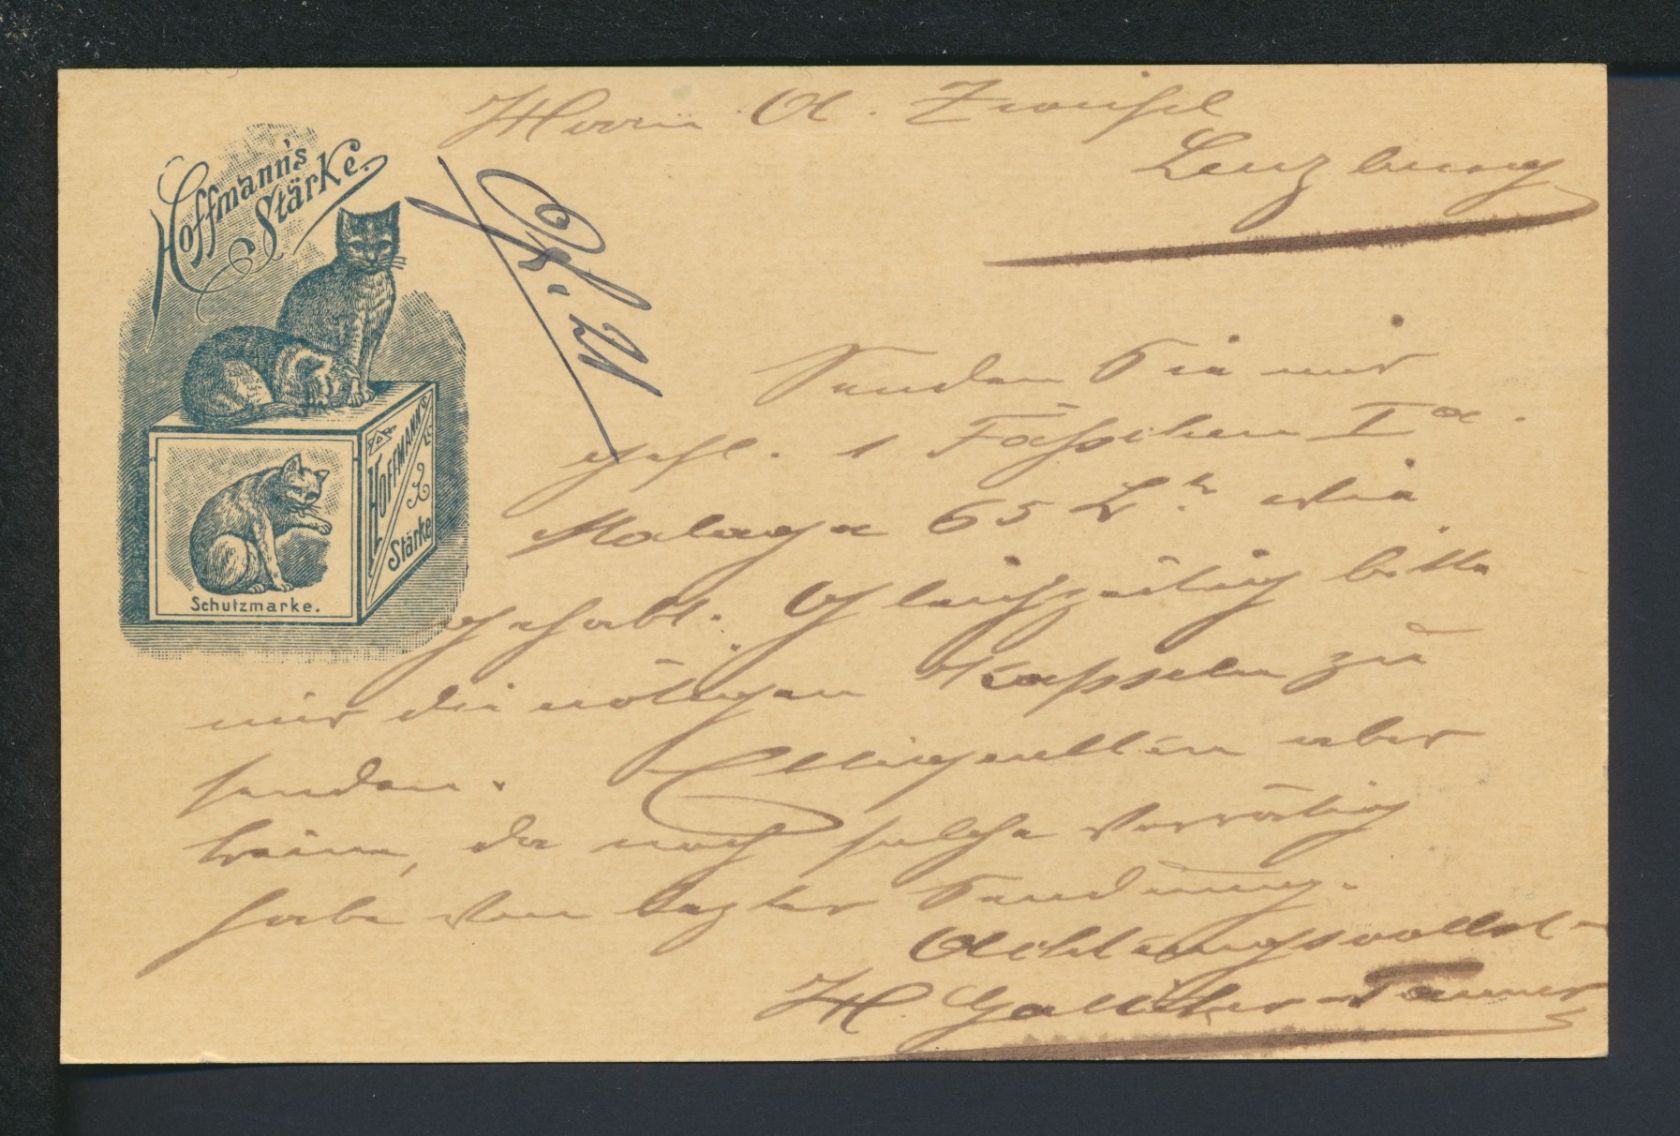 Hoffmann's
Stärke.
Hoffmann's
Stärke
Schutzmarke.
Herrn A. Zweifel
Lenzburg
Senden Sie mir
gefl. 1 Fässchen Iª.
Malaga 65 Lr. wie
gehabt. Gleichzeitig bitte
mir die nötigen Kapseln zu
senden. Etiquetten aber
keine, da noch solche vorrätig
habe von letzter Sendung.
Achtungsvollst
H. Galliker-Tanner